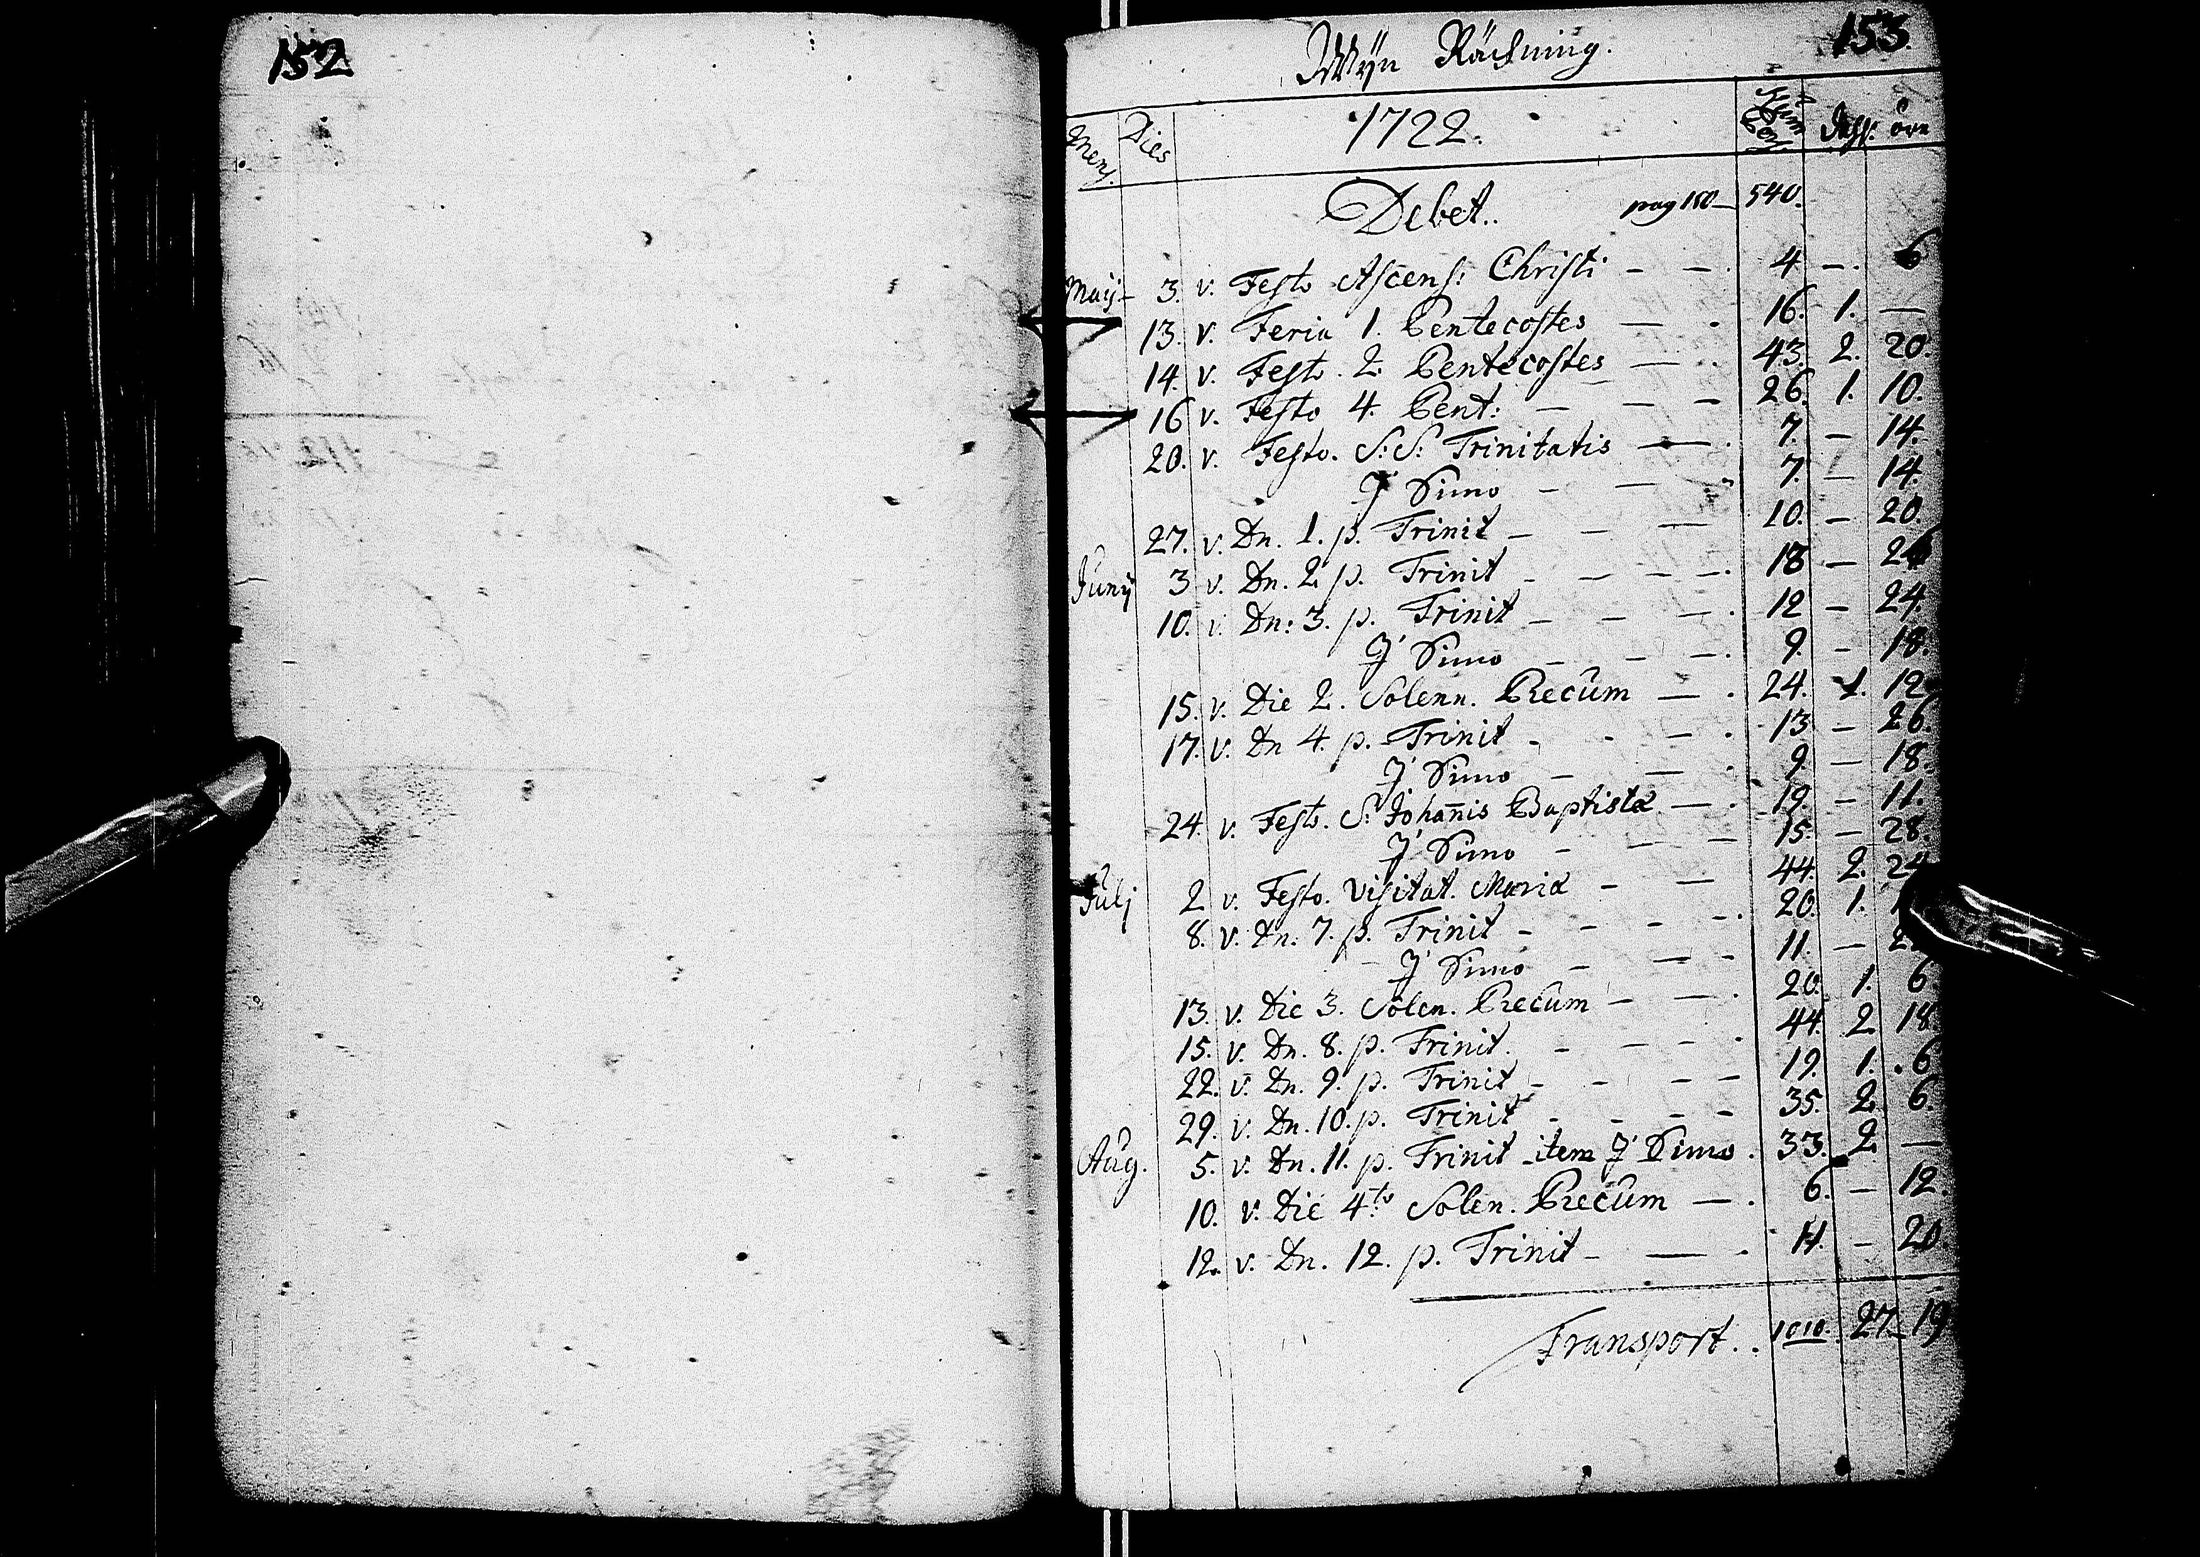 152
153.
Wÿn Rächning.
Mens. Dies 1722. Dhlr. öre
Debet. pag 150 — 540.
Maij — 3. v. Festo Ascens: Christi — — . 4 — . 6
13. v. Feria 1. Pentecostes — . 16. 1. —
14. v. Festo. 2. Pentecostes — . 43. 2. 20.
16 v. Festo 4. Pent: — — — 26. 1. 10.
20. v. Festo. S:S: Trinitatis — . 7. — 14.
J Simo — — . 7. — 14.
27. v. Dn. 1. p. Trinit — — — 10. — 20.
Junij 3 v. Dn. 2 p. Trinit — — — . 18 —
10. v. Dn: 3. p. Trinit — — — . 12 — 24.
J Simo — — — . 9. — 18.
15. v. Die 2. Solenn. Precum — . 24. 1. 12
17. v. Dn 4. p. Trinit - - - . 13 — 26.
J Simo — — . 9 — 18.
24. v. Festo. S. Johan̄is Baptistæ — . 19. — 11.
J Simo — — — 15. — 28.
Julj 2 v. Festo. Visitat. Mariæ — — 44. 2. 24
8. v. Dn. 7. p. Trinit — — — . 20. 1.
J Simo — — - 11. —
13. v. Die 3. Solen. Precum — — . 20. 1. 6.
15. v. Dn. 8. p. Trinit. — — — 44. 2 18
22. v. Dn. 9. p. Trinit — - — — 19. 1. . 6
29. v. Dn. 10. p. Trinit - - — — 35. 2. 6.
Aug. 5. v. Dn. 11. p. Trinit item J Simo . 33. 2. —
10. v. Die 4to Solen. Precum — . 6. — 12.
12. v. Dn. 12. p. Trinit — — - — 20.
Transport . . 1010. 27 — 19